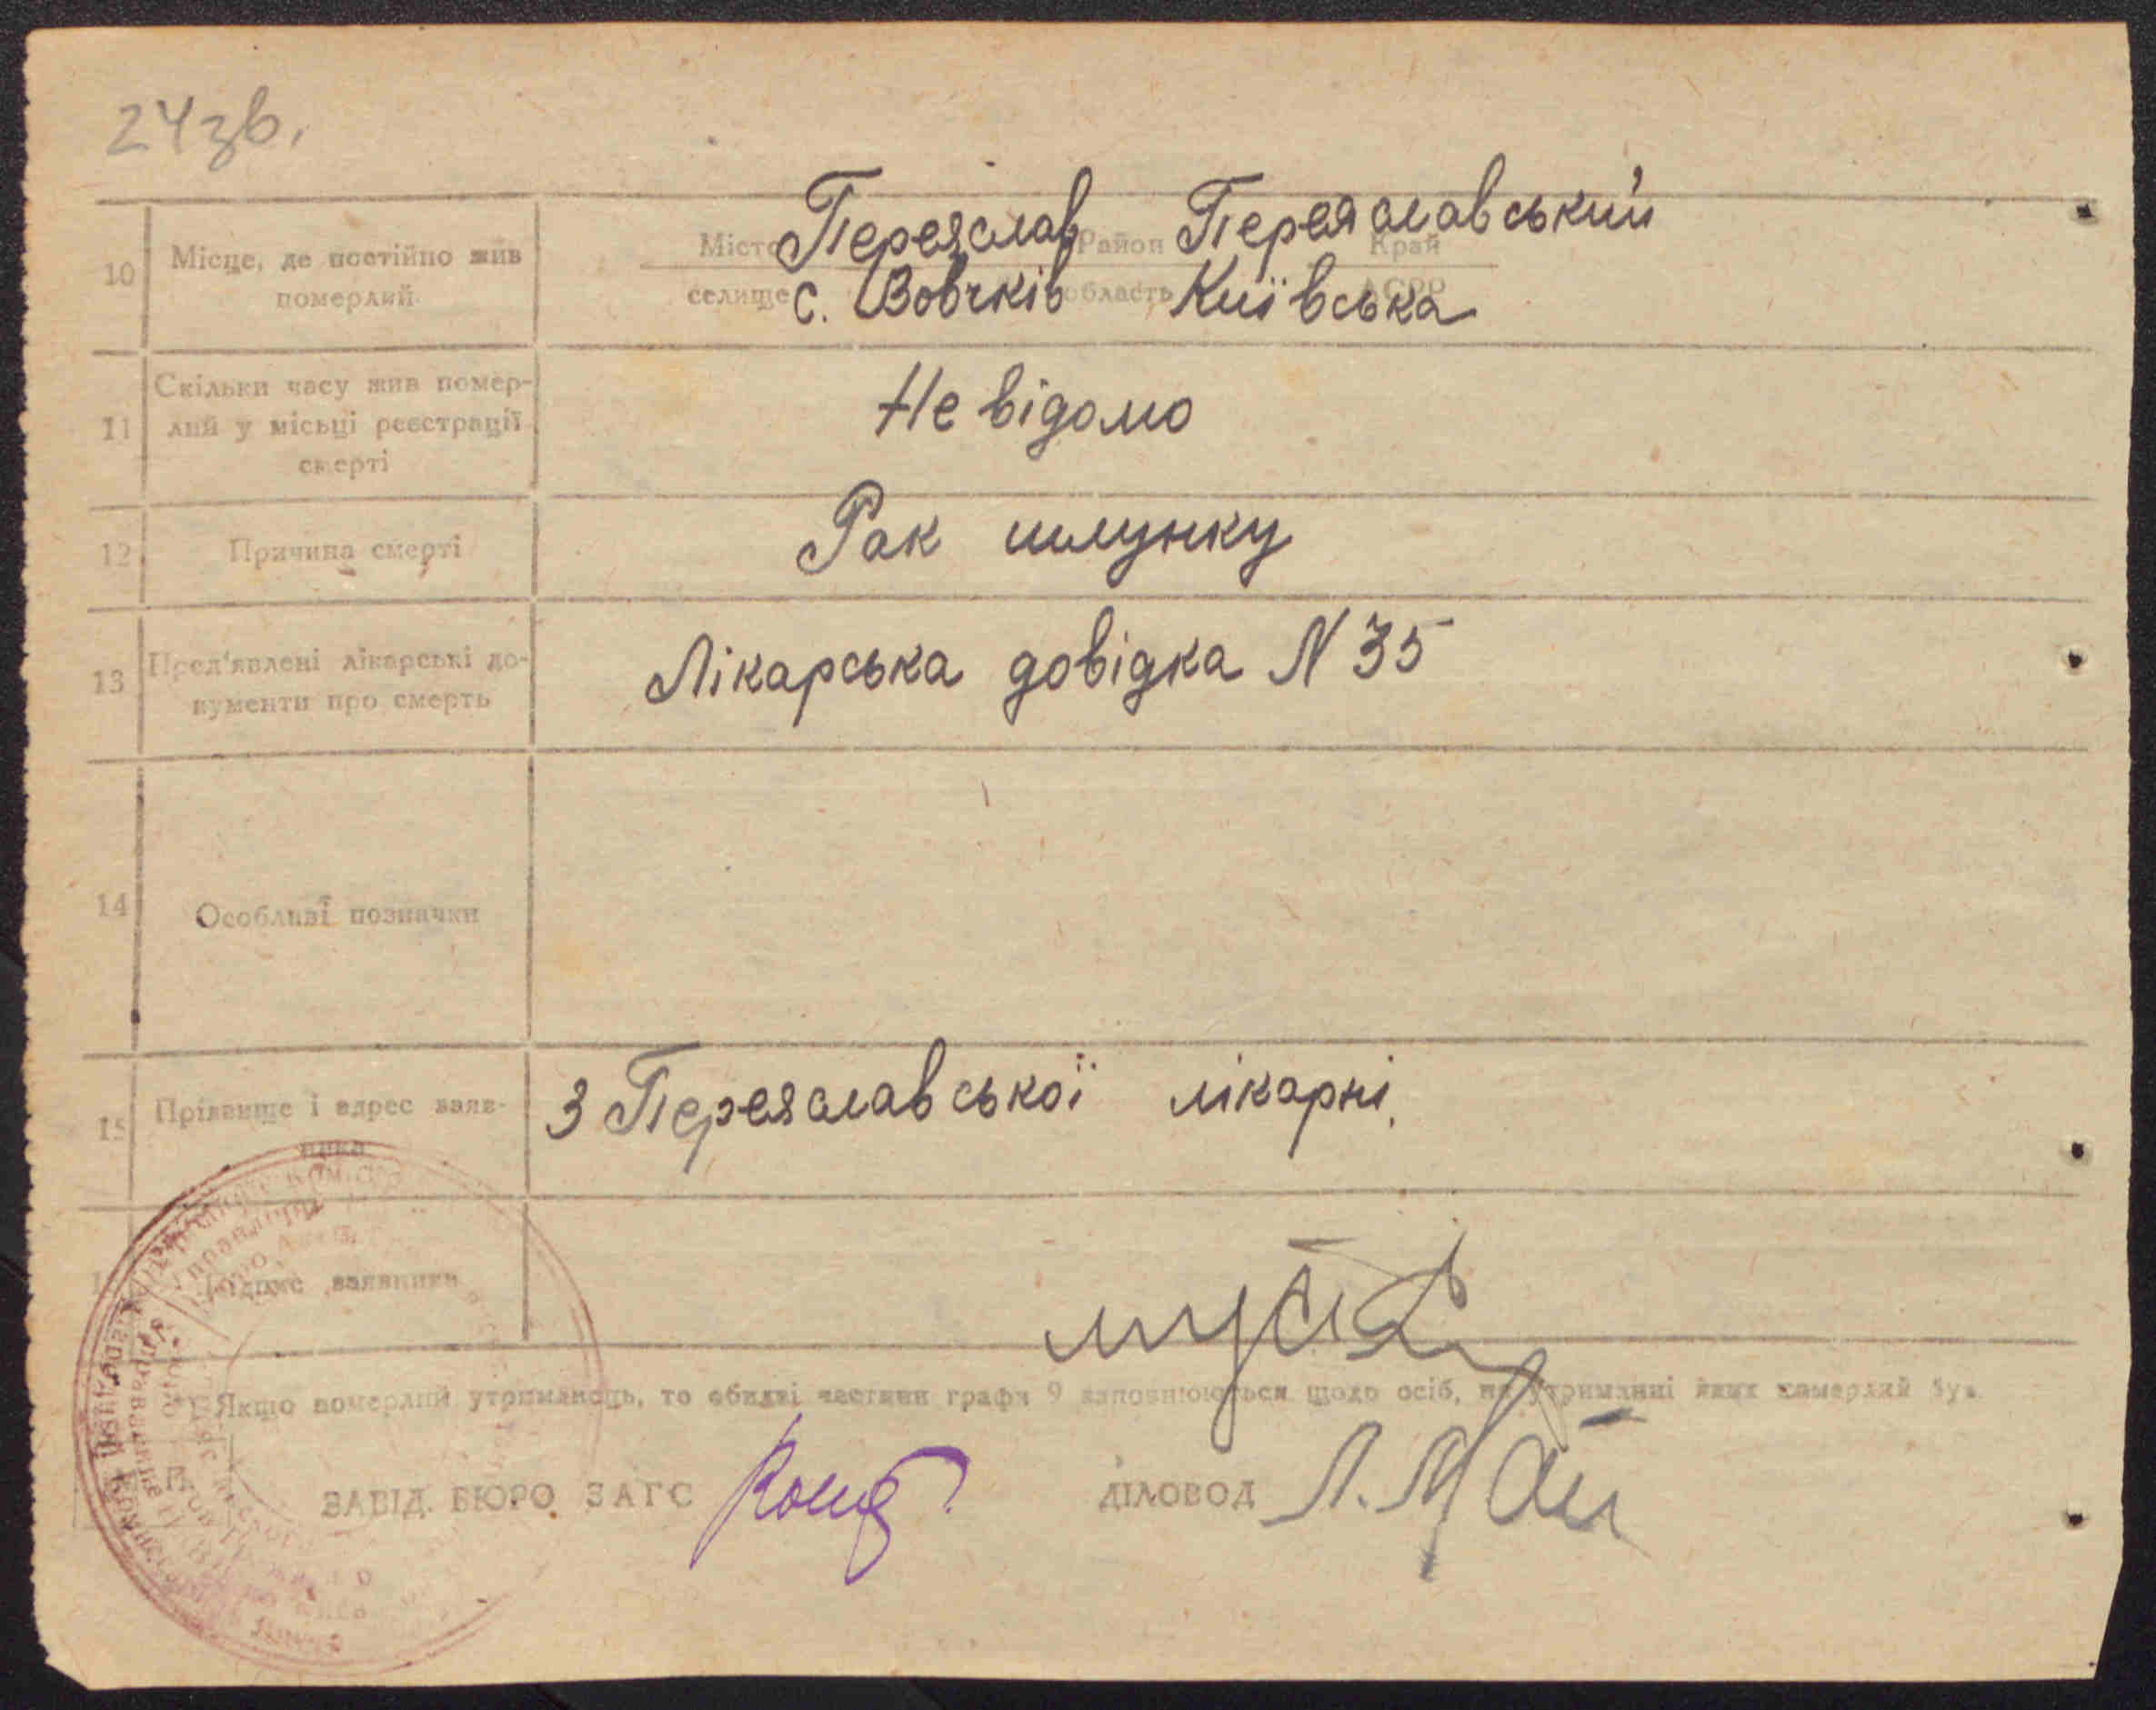 24зв.
10 Місце, де постійно жив померлий
Місто Переяслав Район Переяславський Край
селище с. Вовчків область Київська АСРР
11 Скільки часу жив помер-
лий у місьці реєстрації
смерті
Не відомо
12 Причина смерті Рак шлунку
13 Пред'явлені лікарські до-
кументи про смерть
Лікарська довідка N 35
14 Особливі позначки
15 Прізвище і адрес заяв-
ника
З Переяславської лікарні.
Підпис заявника
Якщо померлий утриманець, то обидві частини графи 9 заповнюються щодо осіб, на утриманні яких померлий був.
ЗАВІД. БЮРО ЗАГС ДІЛОВОД Л. Май